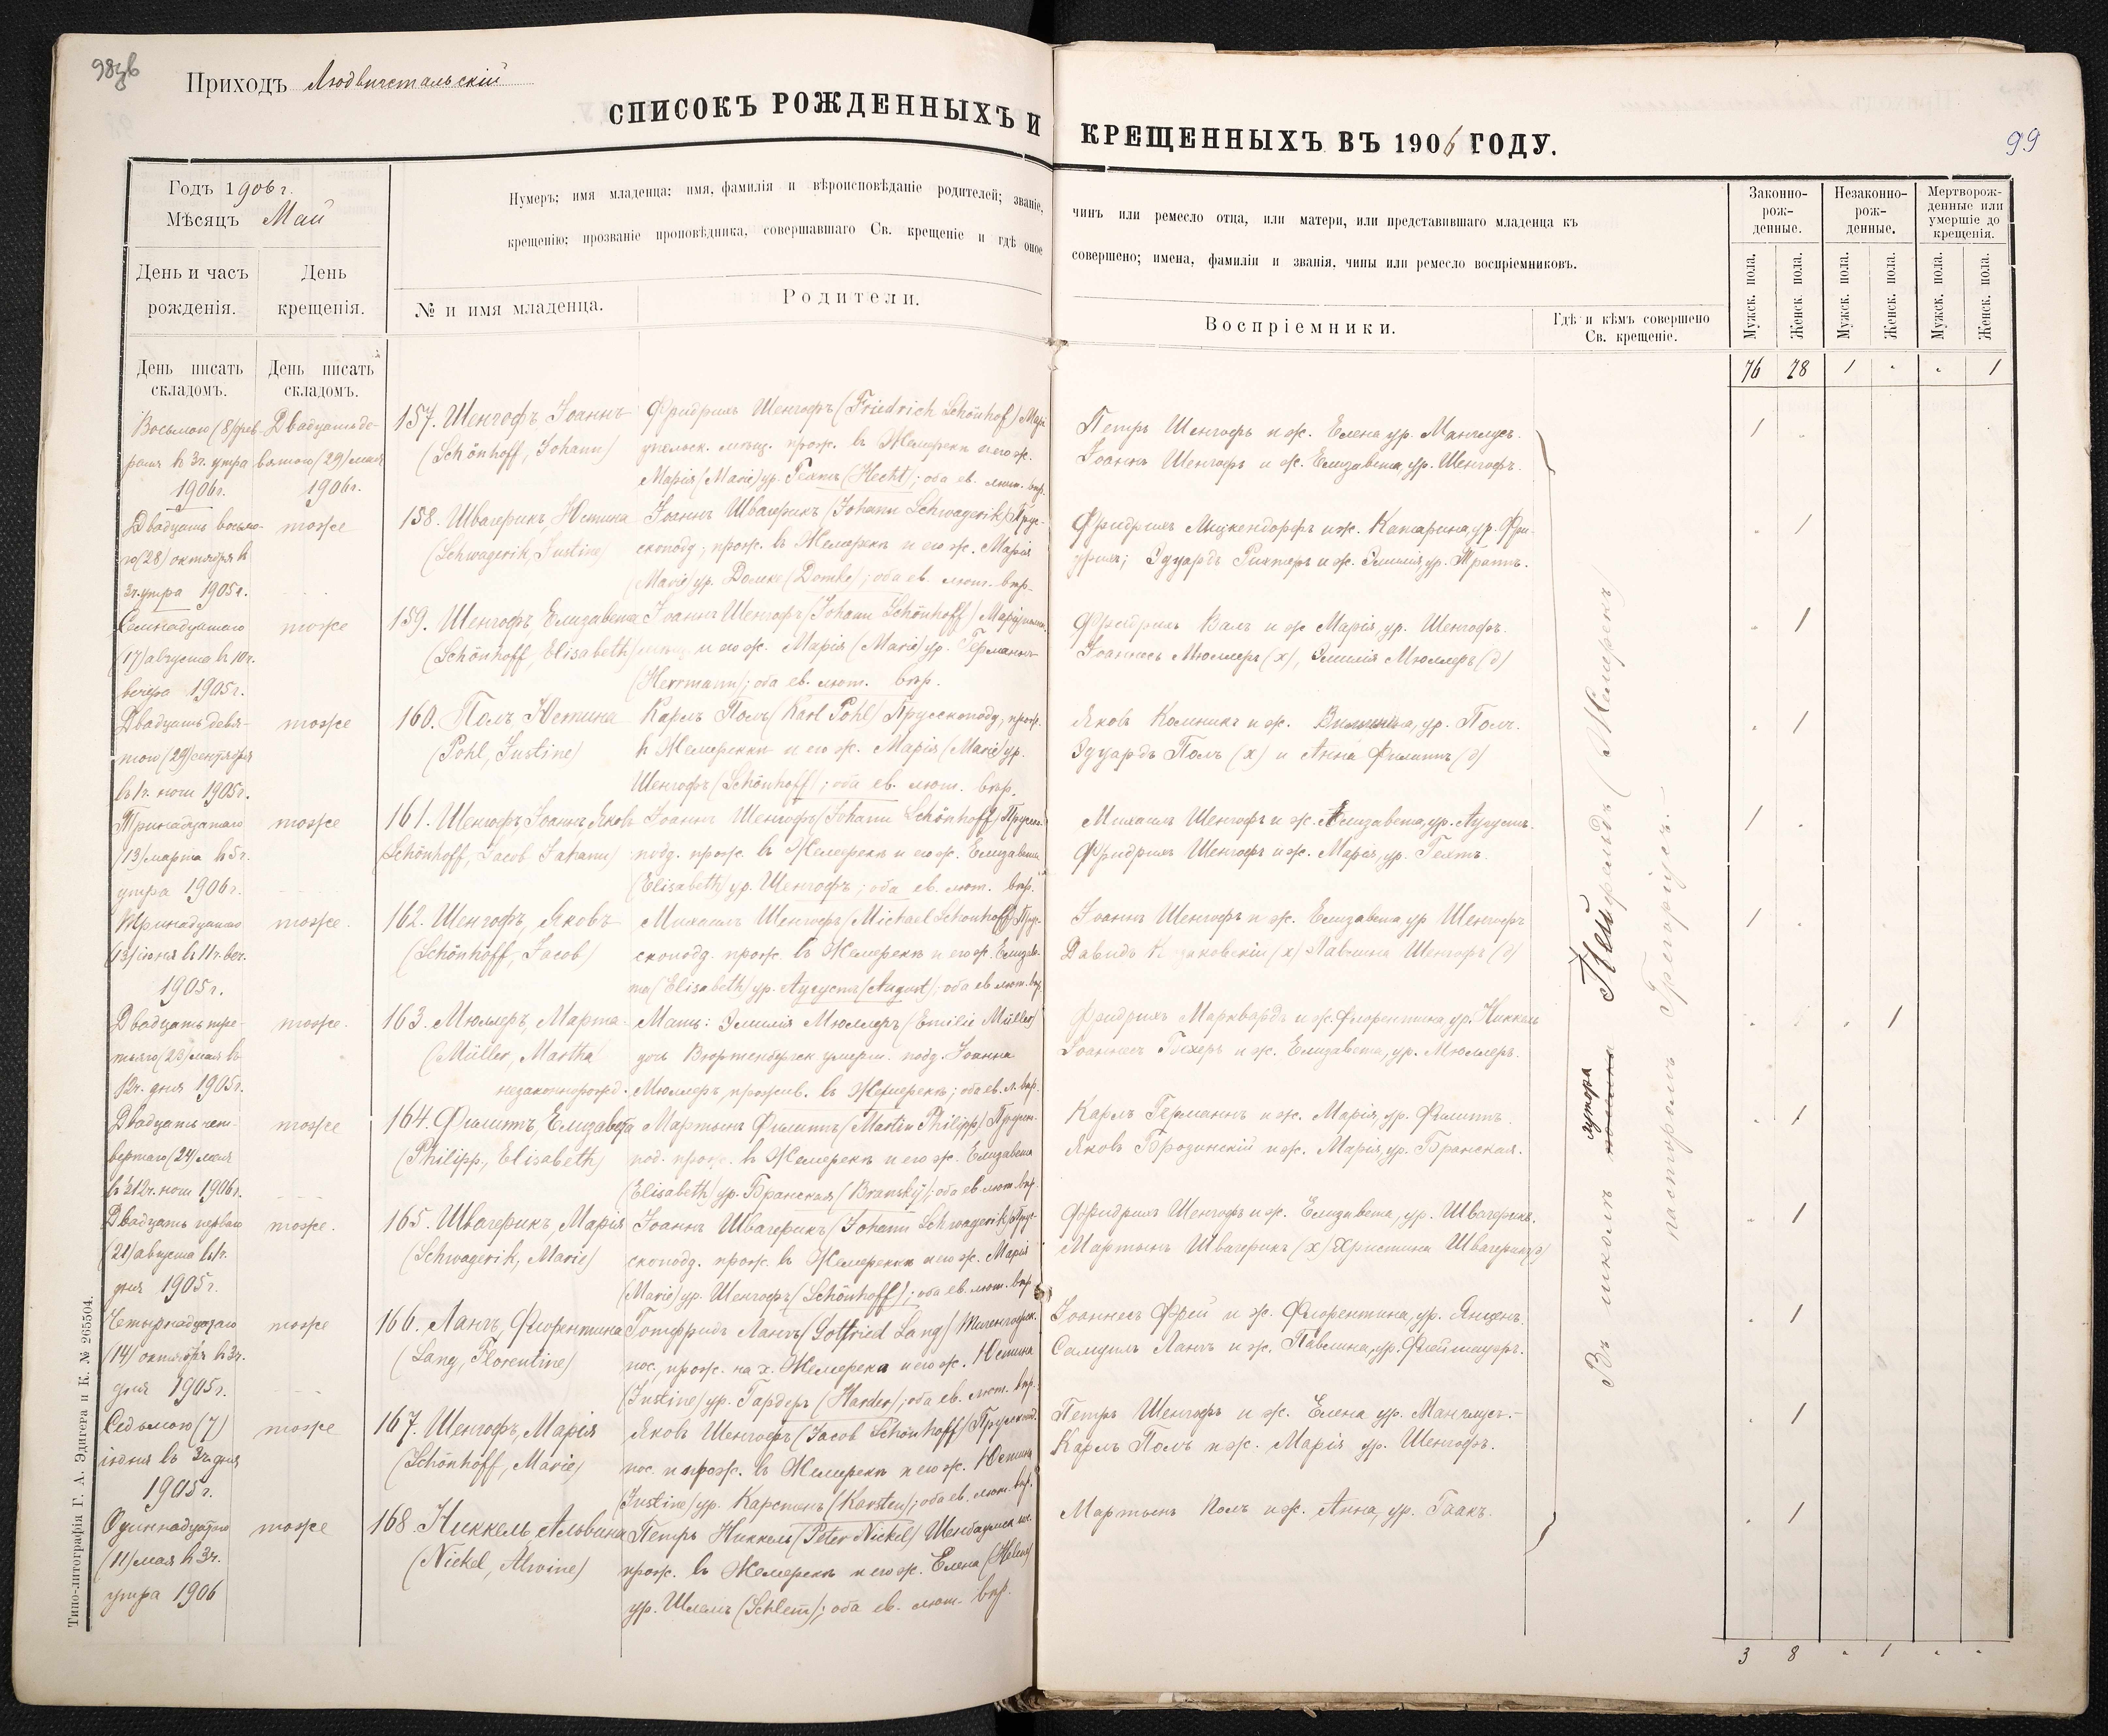 98зв
Приходъ Людвигстальскій
СПИСОКЪ РОЖДЕННЫХЪ И КРЕЩЕННЫХЪ ВЪ 1906 ГОДУ.
99
Годъ 1906 г.
Мѣсяцъ Май
День и часъ рожденія.
День крещенія.
Нумеръ; имя младенца; имя, фамилія и вѣроисповѣданіе родителей; званіе, чинъ или ремесло отца, или матери, или представившаго младенца къ
крещенію; прозваніе проповѣдника, совершавшаго Св. крещеніе и гдѣ оное совершено; имена, фамиліи и званія, чины или ремесло воспріемниковъ.
№ и имя младенца.
Родители.
Воспріемники.
Гдѣ и кѣмъ совершено Св. крещеніе.
Законно-рож-денные.
Незаконно-рож-денные.
Мертворож-денные или умершіе до крещенія.
Мужск. пола. Женск. пола. Мужск. пола. Женск. пола. Мужск. пола. Женск. пола.
День писать складомъ.
День писать складомъ.
76 78 1 " " 1
Восьмого (8) фев-
раля в 3 ч. утра
1906 г.
Двадцать де-
вятого (29) мая
1906 г.
157. Шенгофъ, Іоаннъ
(Schönhoff, Johann)
Фридрихъ Шенгофъ (Friedrich Schönhof) Марі-
упольск. мѣщ. прож. въ Жемерекѣ и его ж.
Марія (Marie) ур. Гехтъ (Hecht); оба ев. лют. вѣр.
Петръ Шенгофъ и ж. Елена ур. Манглусъ.
Іоаннъ Шенгофъ и ж. Елизавета, ур. Шенгофъ.
1
Двадцать восьмо-
го (28) октября в
3 ч. утра 1905 г.
тоже
158. Швагерикъ, Юстина
(Schwagerik, Justine)
Іоаннъ Швагерикъ (Johann Schwagerik) Прус-
скоподд., прож. въ Жемерекѣ и его ж. Марія
(Marie) ур. Домке (Domke); оба ев. лют. вѣр.
Фридрихъ Лицкендорфъ и ж. Катарина, ур. Фри-
дрихъ; Эдуардъ Рихтеръ и ж. Эмилія, ур. Траппъ.
1
Семнадцатаго
(17) августа в 10 ч.
вечера 1905 г.
тоже
159. Шенгофъ, Елизавета
(Schönhoff, Elisabeth)
Іоаннъ Шенгофъ (Johann Schönhoff) Маріупольск.
мѣщ. и его ж. Марія (Marie) ур. Германнъ
(Herrmann); оба ев. лют. вѣр.
Фридрихъ Валъ и ж. Марія, ур. Шенгофъ.
Іоаннесъ Мюллеръ (х), Эмилія Мюллеръ (д)
1
Двадцать девя-
того (29) сентября
в 1 ч. ночи 1905 г.
тоже
160. Полъ, Юстина
(Pohl, Justine)
Карлъ Полъ (Karl Pohl) Прусскоподд., прож.
в Жемерекѣ и его ж. Марія (Marie) ур.
Шенгофъ (Schönhoff); оба ев. лют. вѣр.
Яковъ Калиника и ж. ур. Полъ.
Эдуардъ Полъ (х) и Анна Филиппъ (д)
1
Тринадцатаго
(13) марта в 5 ч.
утра 1906 г.
тоже
161. Шенгофъ, Іоаннъ Яковъ
(Schönhoff, Jacob Johann)
Іоаннъ Шенгофъ (Johann Schönhoff) Прусско-
подд. прож. въ Жемерекѣ и его ж. Елизавета
(Elisabeth) ур. Шенгофъ; оба ев. лют. вѣр.
Михаилъ Шенгофъ и ж. Елизавета, ур. Аугустъ.
Фридрихъ Шенгофъ и ж. Марія, ур. Гехтъ.
1
Тринадцатаго
(13) іюня в 11 ч. веч.
1905 г.
тоже.
162. Шенгофъ, Яковъ
(Schönhoff, Jacob)
Михаилъ Шенгофъ (Michael Schönhoff) Прус-
скоподд. прож. въ Жемерекѣ и его ж. Елизаве-
та (Elisabeth) ур. Аугустъ (August); оба ев. лют. вѣр.
Іоаннъ Шенгофъ и ж. Елизавета ур. Шенгофъ
Давидъ (х) Павлина Шенгофъ (д)
1
Двадцать тре-
тьяго (23) мая в
12 ч. дня 1905 г.
тоже.
163. Мюллеръ, Марта
(Müller, Martha)
незаконнорожд.
Мать: Эмилія Мюллеръ (Emilie Müller)
дочь Вюртембергск. умерш. подд. Іоанна
Мюллеръ, прожив. въ Жемерекѣ; оба ев. л. вѣр.
Фридрихъ Марквардъ и ж. Флорентина, ур. Никкель
Іоаннесъ и ж. Елизавета, ур. Мюллеръ.
1
Двадцать чет-
вертаго (24) мая
в 12 ч. ночи 1906 г.
тоже
164. Филиппъ, Елизавета
(Philipp, Elisabeth)
Мартынъ Филиппъ (Martin Philipp) Прусско-
под. прож. въ Жемерекѣ и его ж. Елизавета
(Elisabeth) ур. Бранская (Bransky); оба ев. лют. вѣр.
Карлъ Германнъ и ж. Марія, ур. Филиппъ.
Яковъ Бродзинскій и ж. Марія, ур. Бранская.
1
Двадцать перваго
(21) августа в 1 ч.
дня 1905 г.
тоже.
165. Швагерикъ, Марія
(Schwagerik, Marie)
Іоаннъ Швагерикъ (Johann Schwagerik) Прус-
скоподд. прож. въ Жемерекѣ и его ж. Марія
(Marie) ур. Шенгофъ (Schönhoff); оба ев. лют. вѣр.
Фридрихъ Шенгофъ и ж. Елизавета, ур. Швагерикъ.
Мартынъ Швагерикъ (х) Христина Швагерикъ (д)
1
Четырнадцатаго
(14) октября в 3 ч.
дня 1905 г.
тоже
166. Лангъ, Флорентина
(Lang, Florentine)
Готфридъ Лангъ (Gotfried Lang) Тигенгофск.
пос., прож. на х. Жемерекѣ и его ж. Юстина
(Justine) ур. Гардеръ (Harder); оба ев. лют. вѣр.
Іоаннесъ Фрей и ж. Флорентина, ур. Янценъ.
Самуилъ Лангъ и ж. Павлина, ур.
1
Седьмого (7)
іюня в 3 ч. дня
1905 г.
тоже
167. Шенгофъ, Марія
(Schönhoff, Marie)
Яковъ Шенгофъ (Jacob Schönhoff) Прусскопод.
пос. и прож. въ Жемерекѣ и его ж. Юстина
(Justine) ур. Карстенъ (Karsten); оба ев. лют. вѣр.
Петръ Шенгофъ и ж. Елена ур. Манглусъ.
Карлъ Полъ и ж. Марія ур. Шенгофъ.
1
Одиннадцатаго
(11) мая в 3 ч.
утра 1906
тоже
168. Никкель Альвина
(Nickel, Alwine)
Петръ Никкель (Peter Nickel) Шенбаумск. пос.
прож. въ Жемерекѣ и его ж. Елена (Helene)
ур. Шлемъ (Schlem); оба ев. лют. вѣр.
Мартынъ Полъ и ж. Анна, ур. Гаакъ.
1
Въ школѣ хутора Нейфельдъ (Жемерекъ)
пасторомъ Грегоріусъ.
3 8 " 1 " "
Типо-литографія Г. А. Эдигера и К. № 265504.